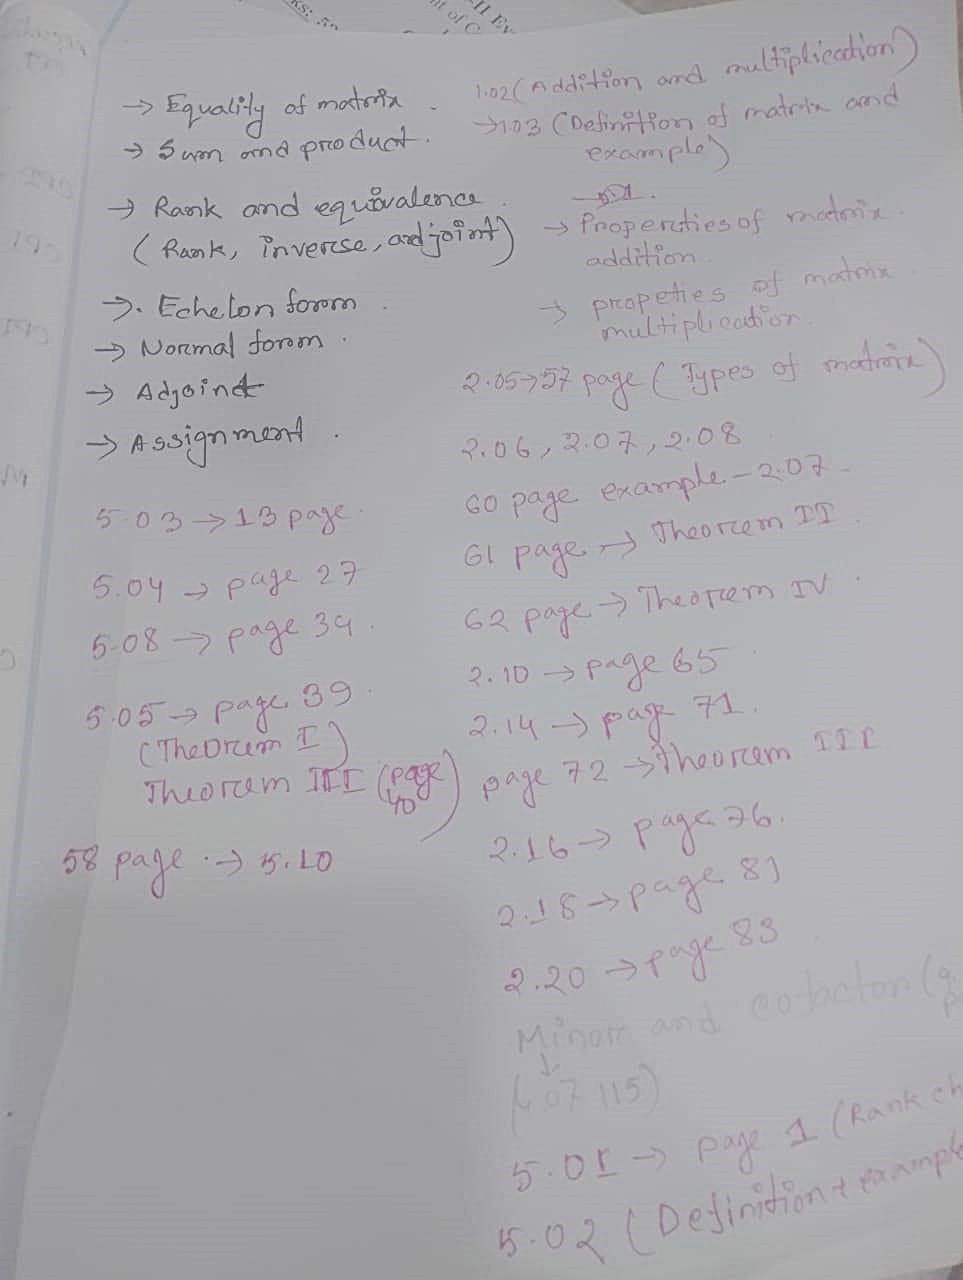 → Equality of matrix .
→ Sum and product .
→ Rank and equivalence .
( Rank, inverse, adjoint)
→. Echelon form .
→ Normal form .
→ Adjoint
→ Assignment .
5.03 → 13 page.
5.04 → page 27
5.08 → page 34 .
5.05 → page 39 .
(Theorem I)
Theorem III (page 40)
58 page . → 5.10
1.02 (Addition and multiplication)
→ 1.03 (Definition of matrix and
example)
→ Properties of matrix .
addition .
→ propeties of matrix .
multiplication.
2.05 → 57 page (Types of matrix)
2.06, 2.07, 2.08 .
60 page example - 2.07 .
61 page → Theorem II .
62 page → Theorem IV .
2.10 → page 65 .
2.14 → page 71.
page 72 → Theorem III
2.16 → page 76.
2.18 → page 81
2.20 → page 83
Minor and cofactor (
↓
07 115)
5.01 → page 1 (Rank ch
5.02 (Definition + example